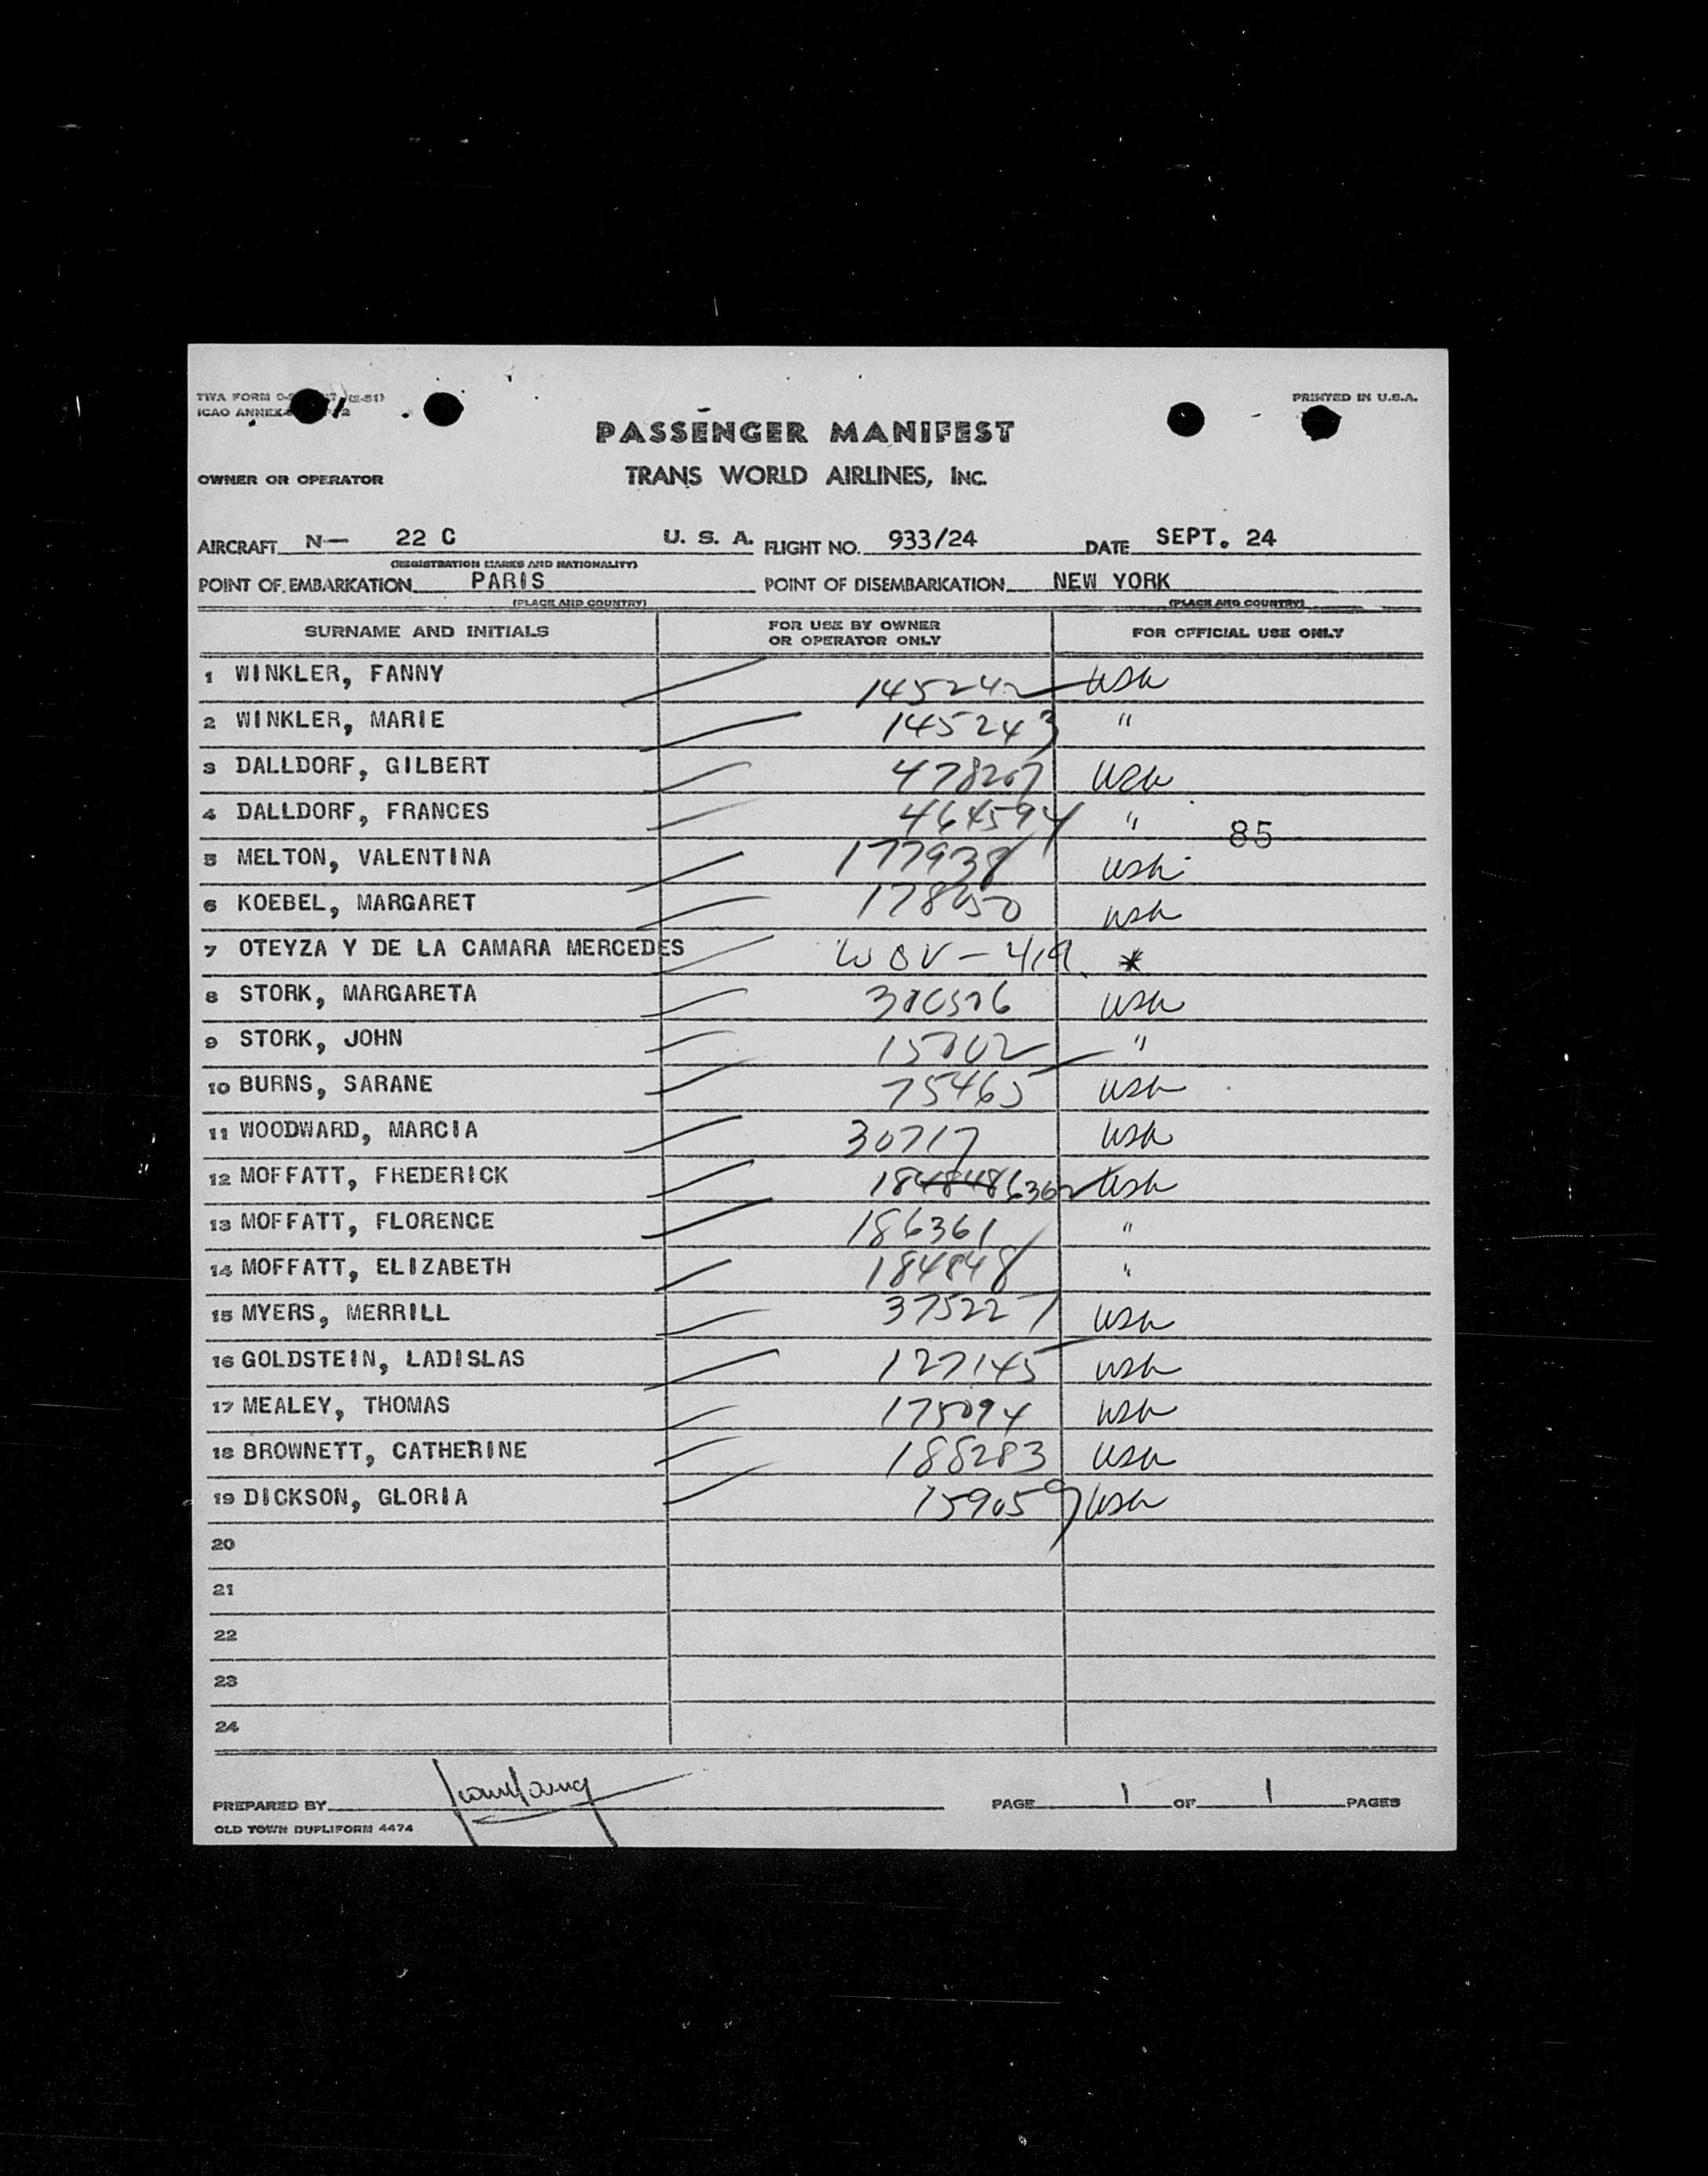 TWA FORM (2-51)
ICAO ANNEX
PRINTED IN U.S.A.
PASSENGER MANIFEST
OWNER OR OPERATOR TRANS WORLD AIRLINES, INC.
AIRCRAFT N— 22 C U. S. A. FLIGHT NO. 933/24 DATE SEPT. 24
(REGISTRATION MARKS AND NATIONALITY)
POINT OF EMBARKATION PARIS POINT OF DISEMBARKATION NEW YORK
(PLACE AND COUNTRY) (PLACE AND COUNTRY)
SURNAME AND INITIALS FOR USE BY OWNER OR OPERATOR ONLY FOR OFFICIAL USE ONLY
1 WINKLER, FANNY 145242 USA
2 WINKLER, MARIE 145243 "
3 DALLDORF, GILBERT 478207 USA
4 DALLDORF, FRANCES 464594 " 85
5 MELTON, VALENTINA 177938 USA
6 KOEBEL, MARGARET USA
7 OTEYZA Y DE LA CAMARA MERCEDES *
8 STORK, MARGARETA USA
9 STORK, JOHN "
10 BURNS, SARANE 75465 USA
11 WOODWARD, MARCIA 30717 USA
12 MOFFATT, FREDERICK USA
13 MOFFATT, FLORENCE 186361 "
14 MOFFATT, ELIZABETH 184848 "
15 MYERS, MERRILL 375227 USA
16 GOLDSTEIN, LADISLAS 127145 USA
17 MEALEY, THOMAS 175094 USA
18 BROWNETT, CATHERINE 188283 USA
19 DICKSON, GLORIA 159059 USA
20
21
22
23
24
PREPARED BY PAGE 1 OF 1 PAGES
OLD TOWN DUPLIFORM 4474